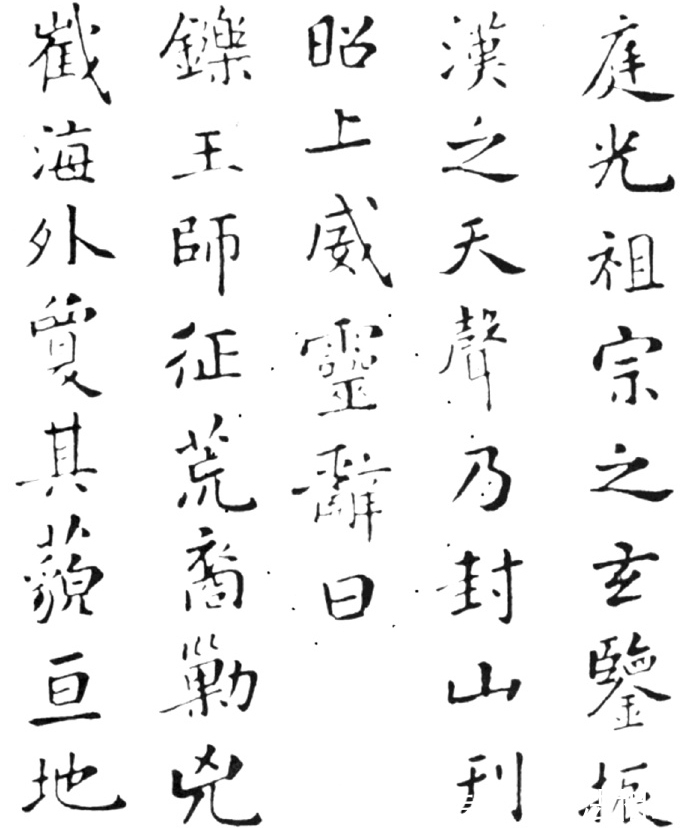 庭光祖宗之玄鑒振
漢之天聲乃封山刊
昭上威靈辭曰
鑠王師征荒裔勦凶
截海外敻其藐亘地